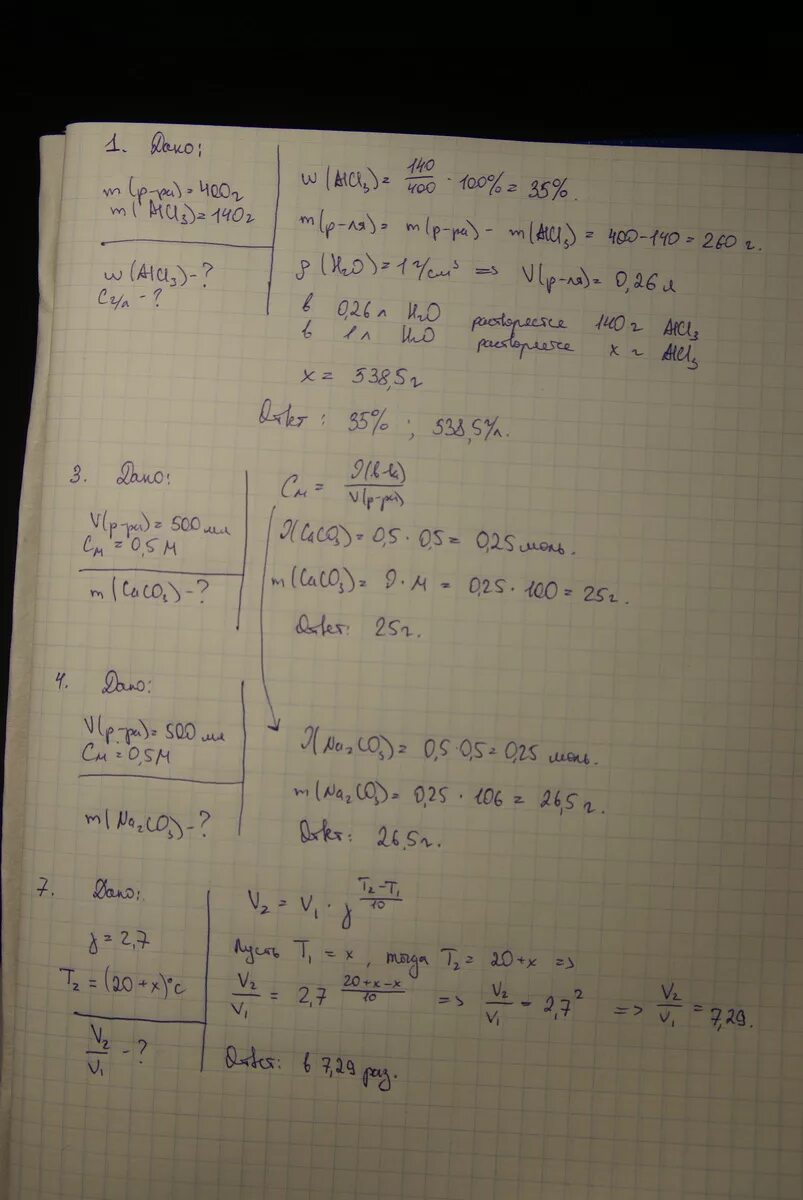 1. Дано:
m(р-ра) = 400г
m(AlCl3) = 140г
w(AlCl3) - ?
Сг/л - ?
w(AlCl3) = 140/400 · 100% = 35%.
m(р-ля) = m(р-ра) - m(AlCl3) = 400-140 = 260 г.
ρ(H2O) = 1 г/см³ => V(р-ля) = 0,26 л
в 0,26 л H2O растворяется 140 г AlCl3
в 1 л H2O растворяется x г AlCl3
x = 538,5 г
Ответ: 35%; 538,5 г/л.
3. Дано:
V(р-ра) = 500 мл
См = 0,5 М
m(CaCO3) - ?
См = ν(в-ва)/V(р-ра)
ν(CaCO3) = 0,5 · 0,5 = 0,25 моль.
m(CaCO3) = ν · М = 0,25 · 100 = 25 г.
Ответ: 25 г.
4. Дано:
V(р-ра) = 500 мл
См = 0,5М
m(Na2CO3) - ?
ν(Na2CO3) = 0,5 · 0,5 = 0,25 моль.
m(Na2CO3) = 0,25 · 106 = 26,5 г.
Ответ: 26,5 г.
7. Дано:
γ = 2,7
T2 = (20 + x)°C
V2/V1 - ?
V2 = V1 · γ^((T2-T1)/10)
Пусть T1 = x, тогда T2 = 20 + x =>
V2/V1 = 2,7^((20+x-x)/10) => V2/V1 = 2,7² => V2/V1 = 7,29.
Ответ: в 7,29 раз.